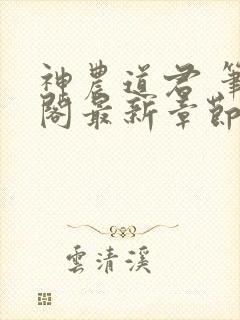 神農道君 筆
閣最新章節
雲清溪